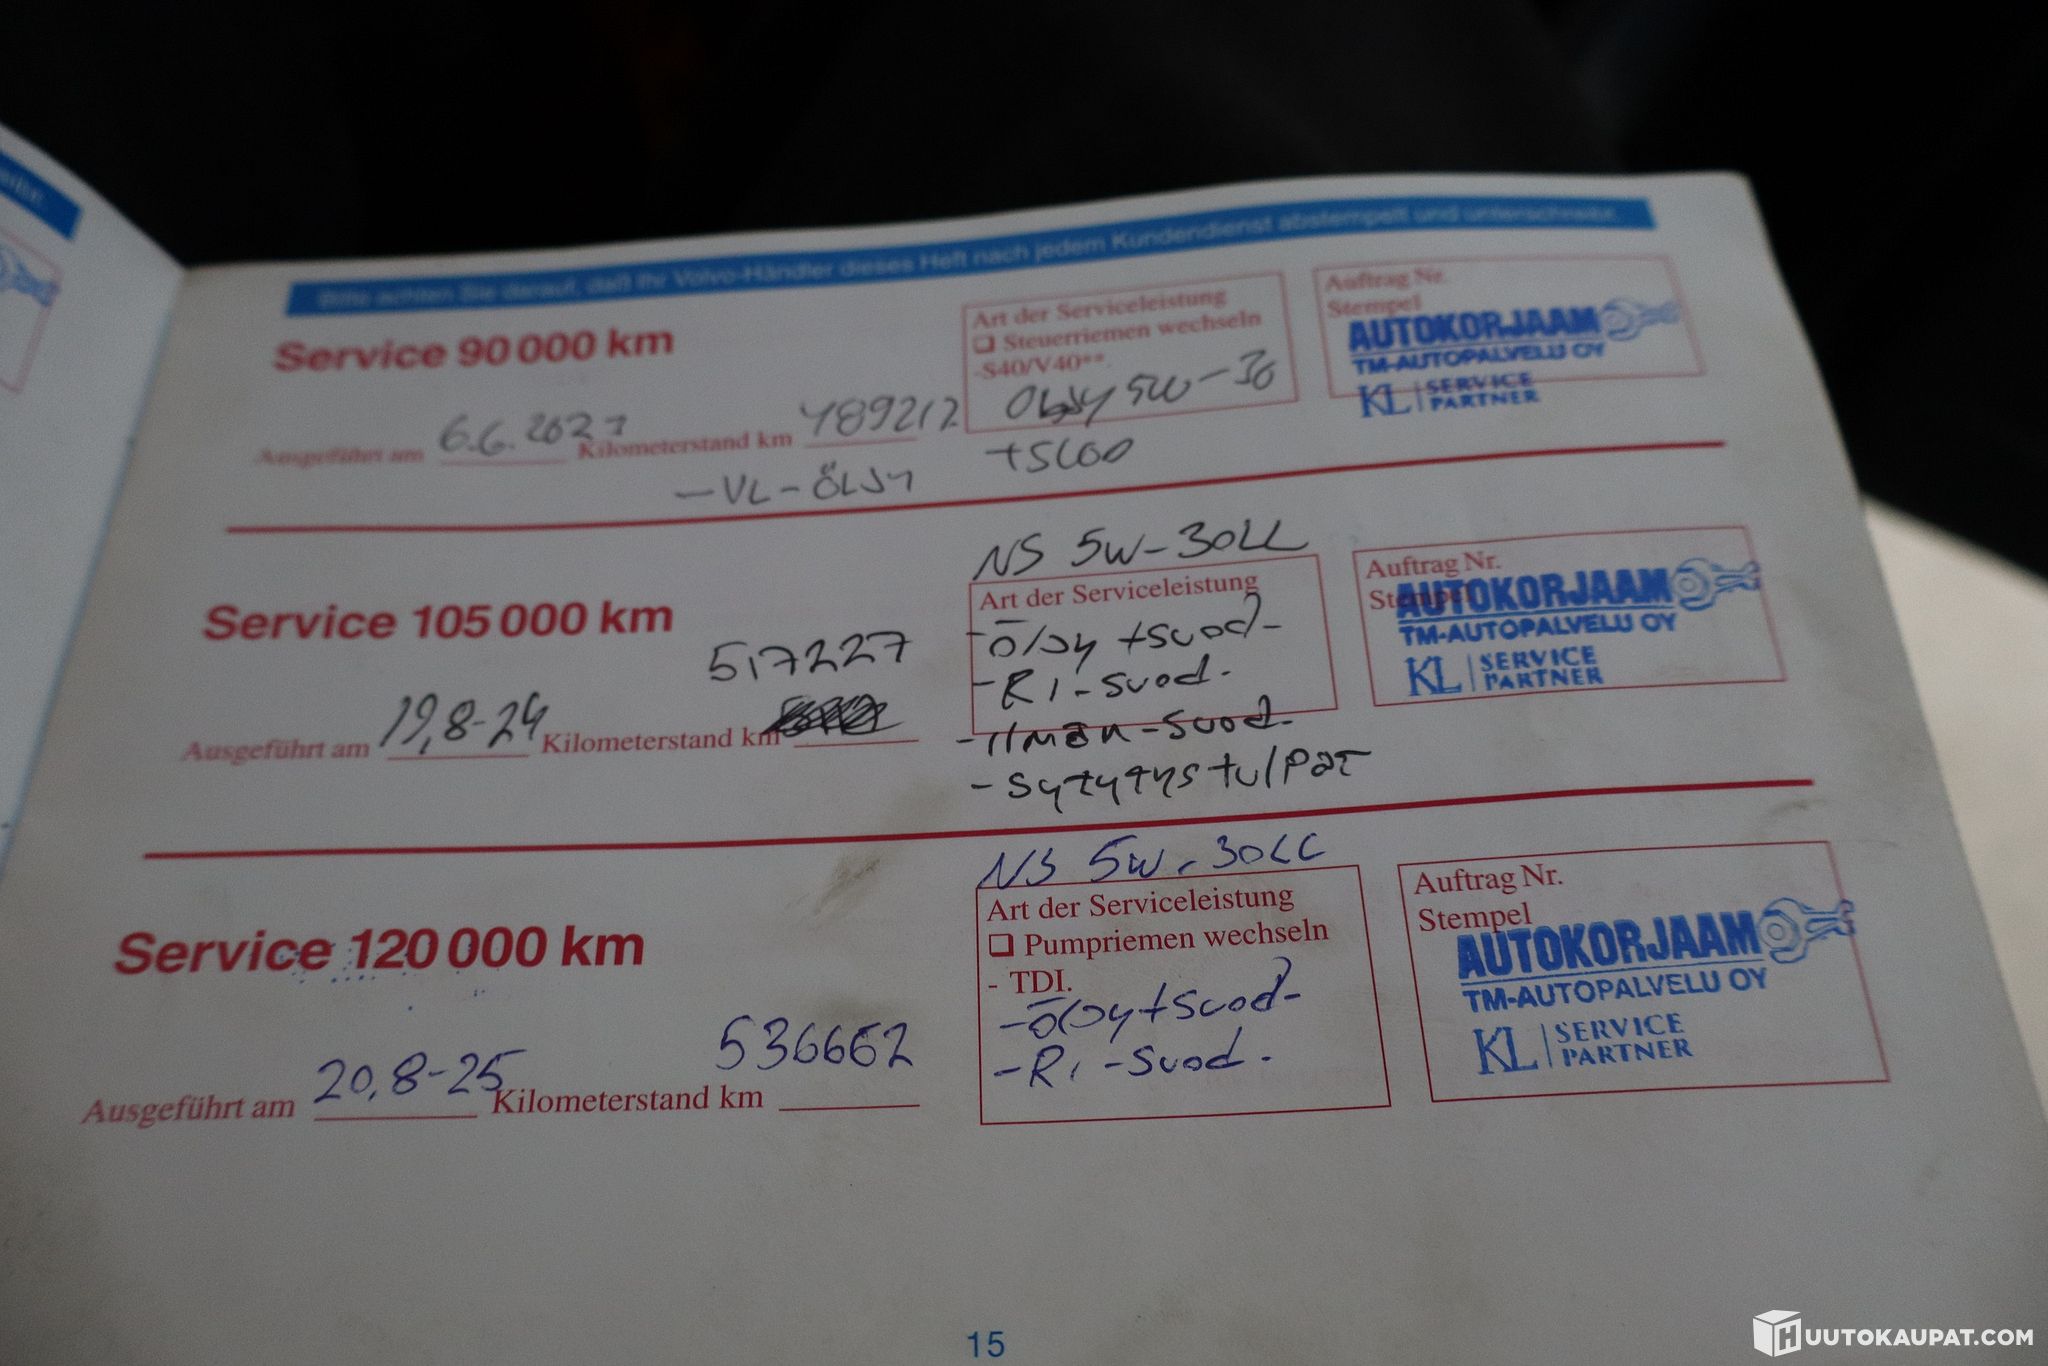 Bitte achten Sie darauf, daß Ihr Volvo-Händler dieses Heft nach jedem Kundendienst abstempelt und unterschreibt.
Service 90 000 km
Ausgeführt am 6.6.2023 Kilometerstand km 489212
-VL-ÖLJY
Art der Serviceleistung
❑ Steuerriemen wechseln
-S40/V40**
Öljy 5W-30
+SUOD
Auftrag Nr.
Stempel
AUTOKORJAAM
TM-AUTOPALVELU OY
KL SERVICE
PARTNER
Service 105 000 km
517227
Ausgeführt am 19,8-24 Kilometerstand km
NS 5W-30LL
Art der Serviceleistung
-öljy +suod-
-Ri-suod.
-ilman-suod.
-sytytystulpat
Auftrag Nr.
Stempel
AUTOKORJAAM
TM-AUTOPALVELU OY
KL SERVICE
PARTNER
Service 120 000 km
536662
Ausgeführt am 20,8-25 Kilometerstand km
NS 5W-30LL
Art der Serviceleistung
❑ Pumpriemen wechseln
- TDI.
-öljy+suod-
-Ri-suod.
Auftrag Nr.
Stempel
AUTOKORJAAM
TM-AUTOPALVELU OY
KL SERVICE
PARTNER
15
HUUTOKAUPAT.COM